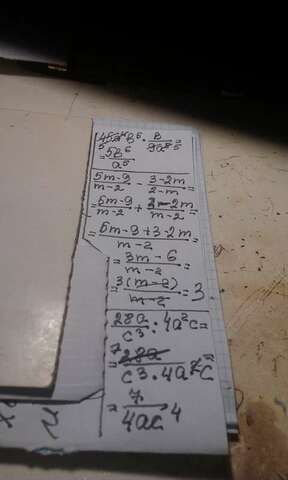 = 5b⁶/a⁵
(5m-9)/(m-2) - (3-2m)/(2-m) =
= (5m-9)/(m-2) + (3-2m)/(m-2) =
= (5m-9+3-2m)/(m-2) =
= (3m-6)/(m-2) =
= 3(m-2)/(m-2) = 3.
28a/c³ : 4a²c =
= 28a/(c³·4a²c) =
= 7/(4ac⁴)